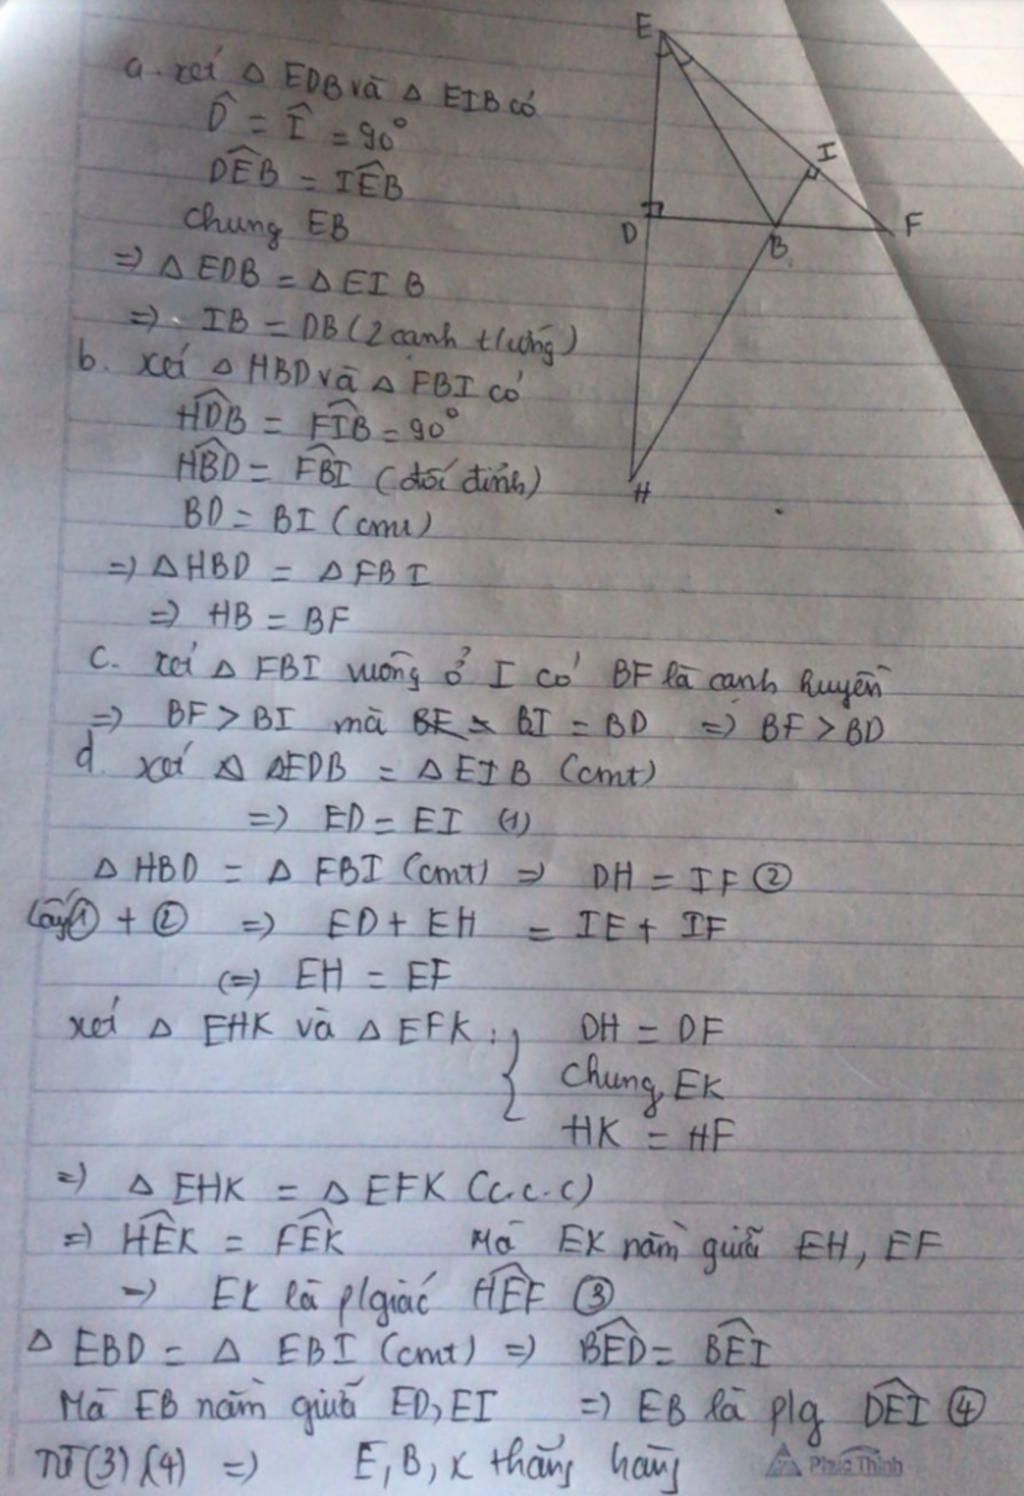 a. xét △ EDB và △ EIB có
D̂ = Î = 90°
DÊB = IÊB
Chung EB
=> △ EDB = △ EIB
=> IB = DB (2 cạnh t/ứng)
b. xét △ HBD và △ FBI có
HD̂B = FÎB = 90°
HB̂D = FB̂I (đối đỉnh)
BD = BI (cmt)
=> △ HBD = △ FBI
=> HB = BF
c. xét △ FBI vuông ở I có BF là cạnh huyền
=> BF > BI mà BI = BD => BF > BD
d. xét △EDB = △ EIB (cmt)
=> ED = EI (1)
△ HBD = △ FBI (cmt) => DH = IF ②
Lấy ① + ② => ED + EH = IE + IF
(=) EH = EF
xét △ EHK và △ EFK : { DH = DF
Chung EK
HK = HF
=> △ EHK = △ EFK (c.c.c)
=> HÊK = FÊK Mà EK nằm giữa EH, EF
=> EK là p/giác HÊF ③
△ EBD = △ EBI (cmt) => BÊD = BÊI
Mà EB nằm giữa ED, EI => EB là p/g DÊI ④
Từ (3)(4) => E, B, K thẳng hàng
E
I
D
B
F
H
Phúc Thịnh